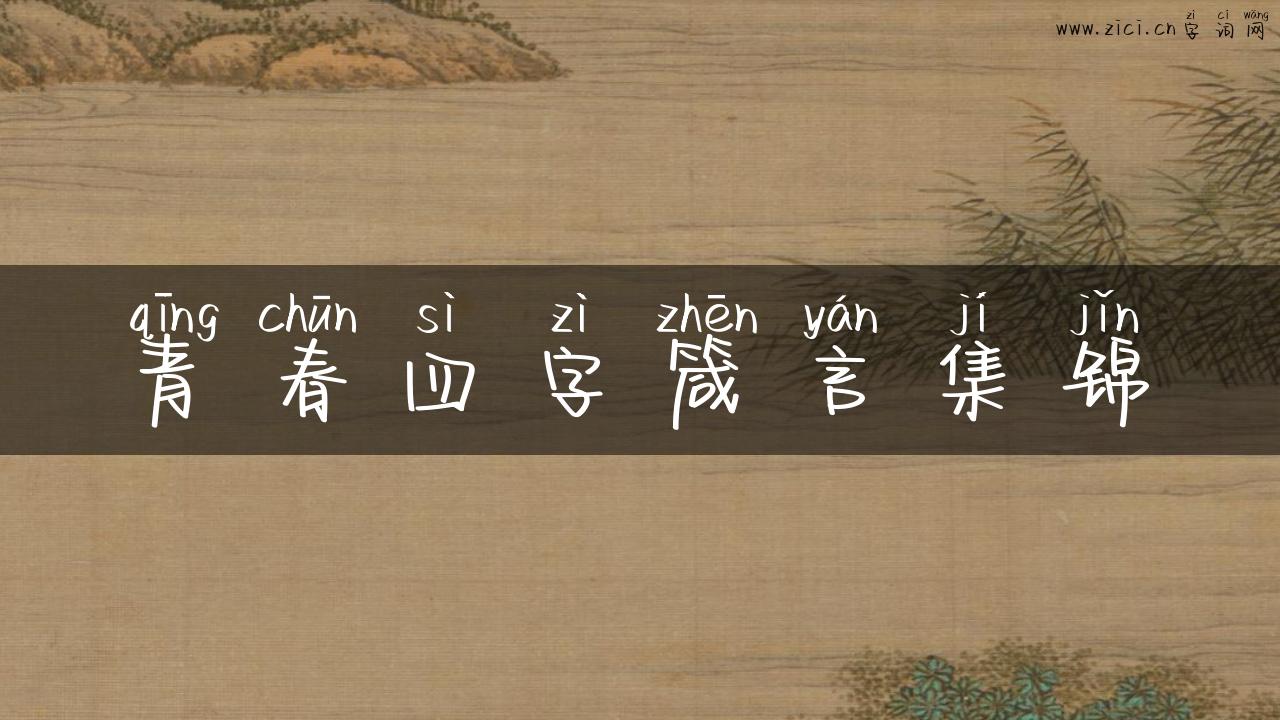 zì cí wǎng
www.zici.cn字词网
qīng chūn sì zì zhēn yán jí jǐn
青春四字箴言集锦